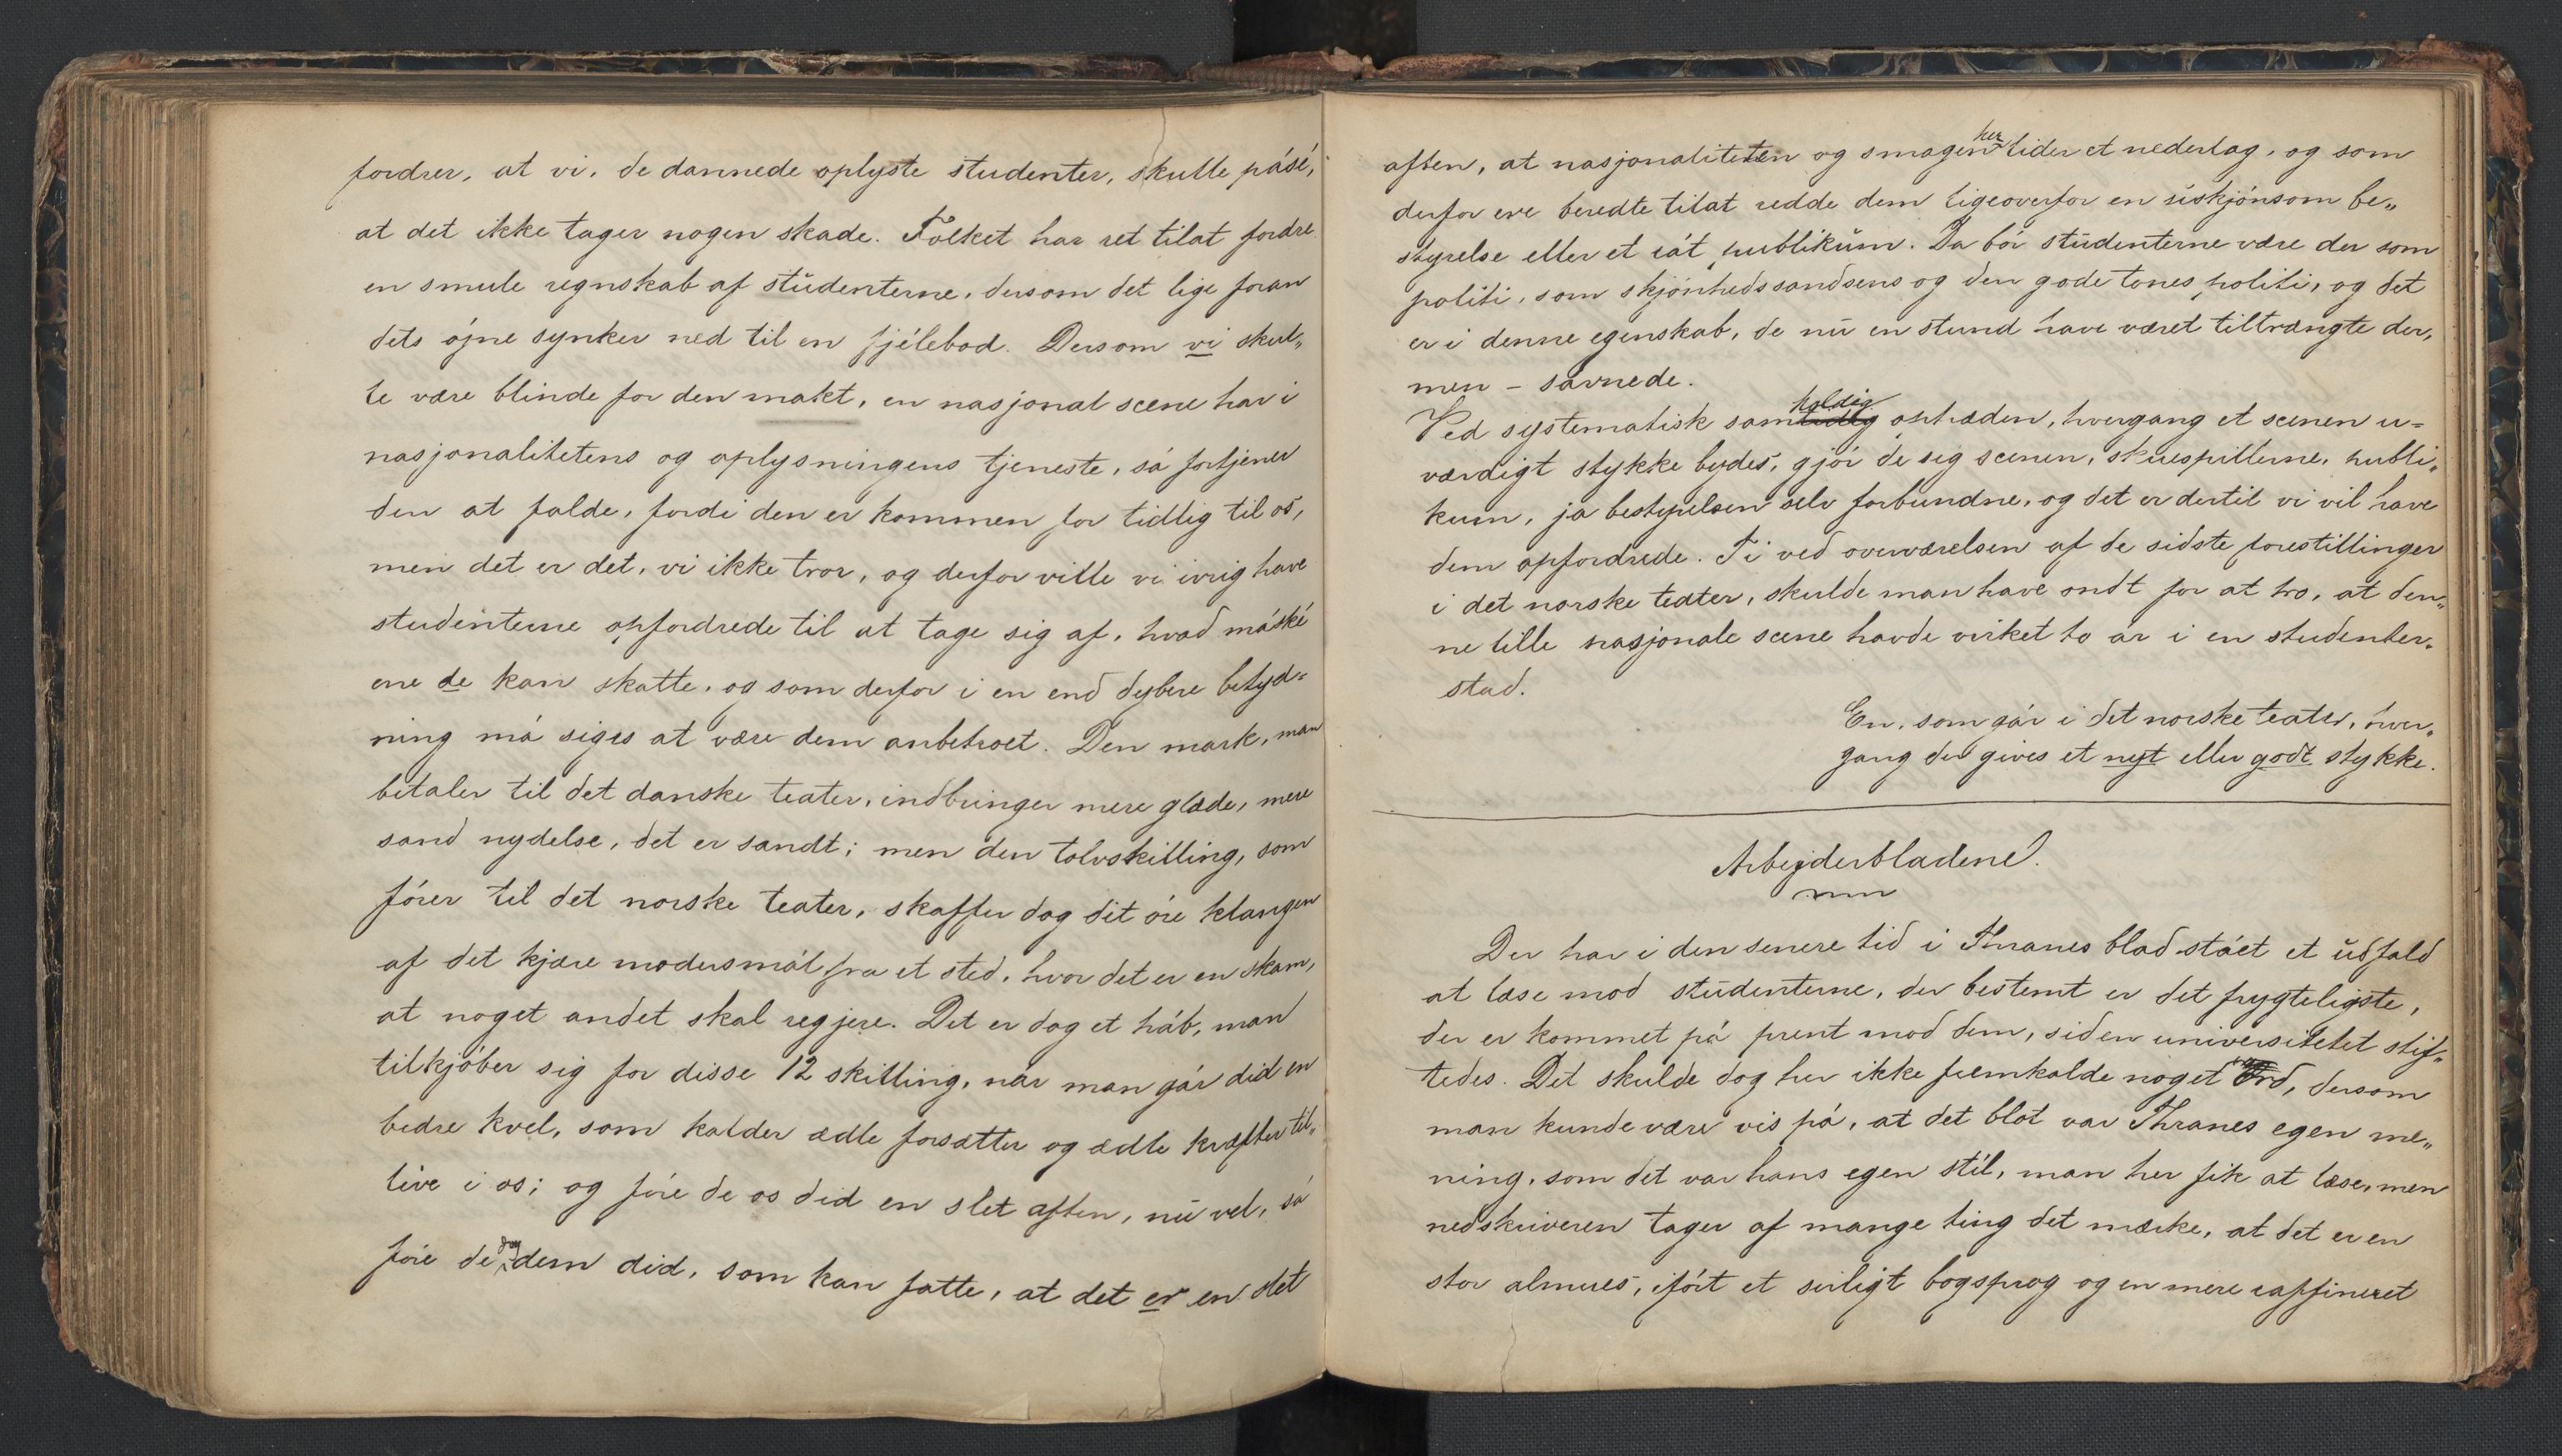 fordrer, at vi, de dannede oplyste studenter, skulle påsé,
at det ikke tager nogen skade. Folket har ret tilat fordre
en smule regnskab af studenterne, dersom det lige foran
dets öjne synker ned til en fjélebod. Dersom vi skul„
le være blinde for den makt, en nasjonal scene har i
nasjonalitetens og oplysningens tjeneste, så fortjener
den at falde, fordi den er kommen for tidlig til os,
men det er det, vi ikke tror, og derfor ville vi ivrig have
studenterne opfordrede til at tage sig af, hvad måské
ene de kan skatte, og som derfor i en end dybere betyd=
ning må siges at være dem anbetroet. Den mark, man
betaler til det danske teater, indbringer mere glæde, mere
sand nydelse, det er sandt; men den tolvskilling, som
fórer til det norske teater, skaffer dog dit óre klangen
af det kjære modersmål fra et sted, hvor det er en skam,
at noget andet skal regjere. Det er dog et håb, man
tilkjóber sig for disse 12 skilling, når man går did en
bedre kvel, som kalder ædle forsætter og ædle kræfter til„
live i os; og fóre de os did en slet aften, nu vel, så
fóre de dog dem did, som kan fatte, at det er en slet
aften, at nasjonaliteten og smagen her lider et nederlag, og som
derfor ere beredte tilat redde dem ligeoverfor en uskjónsom be„
styrelse eller et råt publikum. Da bór studenterne være der som
politi, som skjónhedssandsens og den gode tones politi, og det
er i denne egenskab, de nu en stund have været tiltrængte der,
men – savnede.
Ved systematisk samtidig holdig optræden, hvergang et scenen u=
værdigt stykke bydes, gjór de sig scenen, skuespillerne, publi„
kum, ja bestyrelsen selv forbundne, og det er dertil vi vil have
dem opfordrede. Ti ved overværelsen af de sidste forestillinger
i det norske teater, skulde man have ondt for at tro, at den„
ne lille nasjonale scene havde virket to år i en studenter„
stad.
En, som går i det norske teater, hver„
gang der gives et nyt eller godt stykke.
Arbejderbladene.
Der har i den senere tid i Thranes blad stået et udfald
at læse mod studenterne, der bestemt er det frygteligste,
der er kommet på prent mod dem, siden universitetet stif„
tedes. Det skulde dog her ikke fremkalde noget ord, dersom
man kunde være vis på, at det blot var Thranes egen me„
ning, som det var hans egen stíl, man her fik at læse, men
nedskriveren tager af mange ting det mærke, at det er en
stor almues, ifórt et sirligt bogsprog og en mere raffineret